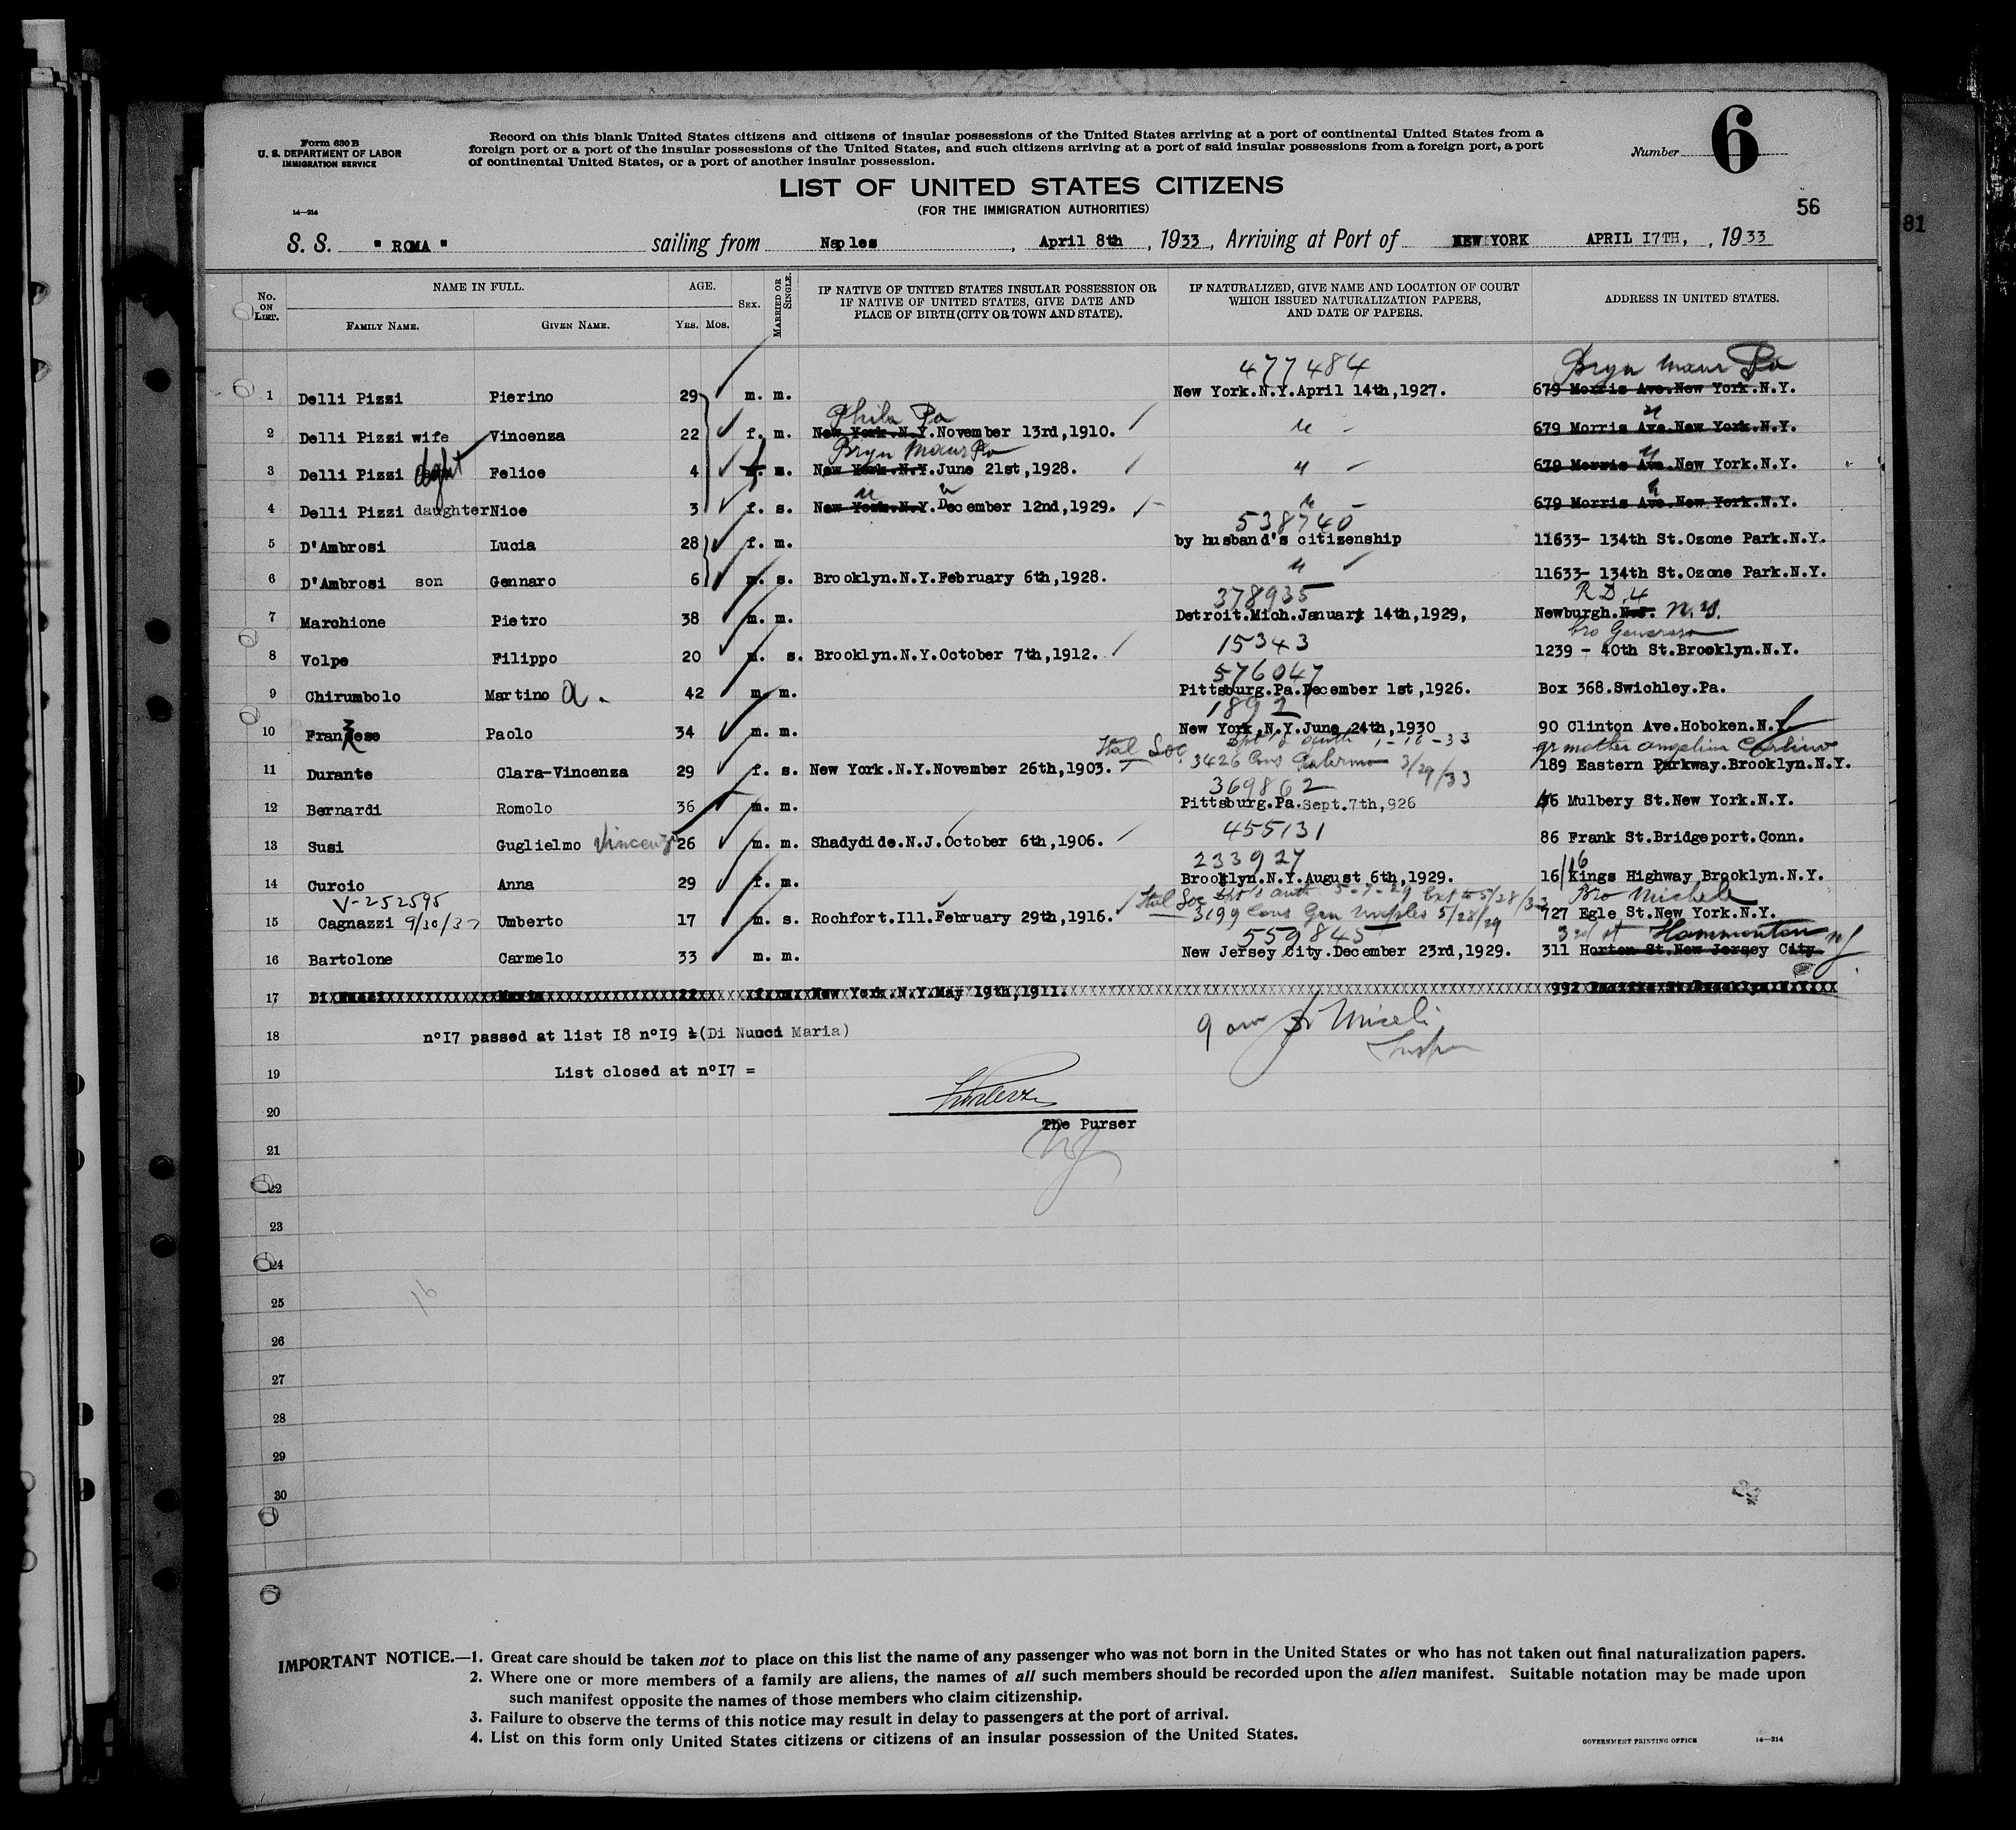 Form 630 B
U. S. DEPARTMENT OF LABOR
IMMIGRATION SERVICE
14—214
Record on this blank United States citizens and citizens of insular possessions of the United States arriving at a port of continental United States from a
foreign port or a port of the insular possessions of the United States, and such citizens arriving at a port of said insular possessions from a foreign port, a port
of continental United States, or a port of another insular possession.
Number 6
LIST OF UNITED STATES CITIZENS
(FOR THE IMMIGRATION AUTHORITIES)
56
81
S. S. " ROMA " sailing from Naples, April 8th, 1933, Arriving at Port of NEW YORK APRIL I7TH, , 1933
No. ON LIST. NAME IN FULL. FAMILY NAME. GIVEN NAME. AGE. YRS. MOS. SEX. MARRIED OR SINGLE. IF NATIVE OF UNITED STATES INSULAR POSSESSION OR IF NATIVE OF UNITED STATES, GIVE DATE AND PLACE OF BIRTH (CITY OR TOWN AND STATE). IF NATURALIZED, GIVE NAME AND LOCATION OF COURT WHICH ISSUED NATURALIZATION PAPERS, AND DATE OF PAPERS. ADDRESS IN UNITED STATES.
477484 Bryn Mawr Pa
1 Delli Pizzi Pierino 29 m. m. New York.N.Y.April 14th,1927. 679 Morris Ave.New York.N.Y.
Phila Pa "
2 Delli Pizzi wife Vincenza 22 f. m. New York.N.Y.November 13rd,1910. " - 679 Morris Ave.New York.N.Y.
Bryn Mawr Pa "
3 Delli Pizzi dght Felice 4 f s. New York.N.Y.June 21st,1928. " - 679 Morris Ave.New York.N.Y.
" " "
4 Delli Pizzi daughter Nice 3 f. s. New York.N.Y.December 12nd,1929. " - 679 Morris Ave.New York.N.Y.
538740
5 D'Ambrosi Lucia 28 f. m. by husband's citizenship 11633- 134th St.Ozone Park.N.Y.
6 D'Ambrosi son Gennaro 6 m. s. Brooklyn.N.Y.February 6th,1928. " 11633- 134th St.Ozone Park.N.Y.
378935 R D 4
7 Marchione Pietro 38 m. m. Detroit.Mich.January 14th,1929, Newburgh. N.Y.
15343 bro Generoso
8 Volpe Filippo 20 m. s. Brooklyn.N.Y.October 7th,1912. 1239 - 40th St.Brooklyn.N.Y.
576047
9 Chirumbolo Martino A. 42 m. m. Pittsburg.Pa.December 1st,1926. Box 368.Swichley.Pa.
1892
10 Franzese Paolo 34 m. m. New York.N.Y.June 24th,1930 90 Clinton Ave.Hoboken.N.Y.
Ital Soc Dpt's auth 1-16-33 gr mother Angelina
11 Durante Clara-Vincenza 29 f. s. New York.N.Y.November 26th,1903. 3426 Cons Palermo 3/29/33 189 Eastern Parkway.Brooklyn.N.Y.
369862
12 Bernardi Romolo 36 m. m. Pittsburg.Pa.Sept.7th,926 6 Mulbery St.New York.N.Y.
455131
13 Susi Guglielmo Vincenzo 26 m. m. Shadydide.N.J.October 6th,1906. 86 Frank St.Bridgeport.Conn.
233927 16
14 Curcio Anna 29 f. m. Brooklyn.N.Y.August 6th,1929. 16 Kings Highway Brooklyn.N.Y.
V-252595 Ital Soc Dpt's auth 5-7-29 Ext to 5/28/33 Bro Michele
15 Cagnazzi 9/30/37 Umberto 17 m. s. Rochfort.Ill.February 29th,1916. 3199 Cons Gen Naples 5/28/29 727 Egle St.New York.N.Y.
559845 3rd st Hammonton NJ
16 Bartolone Carmelo 33 m. m. New Jersey City.December 23rd,1929. 311 Horton St.New Jersey City
17 Di Nucci Maria 22 f. m. New York.N.Y.May 19th,1911. 992 Pacific St.Brooklyn.N.Y.
18 n°I7 passed at list I8 n°I9 (Di Nucci Maria)
19 List closed at n°I7 =
20
The Purser
21
22
23
24
25
16
26
27
28
29
30
IMPORTANT NOTICE.—1. Great care should be taken not to place on this list the name of any passenger who was not born in the United States or who has not taken out final naturalization papers.
2. Where one or more members of a family are aliens, the names of all such members should be recorded upon the alien manifest. Suitable notation may be made upon
such manifest opposite the names of those members who claim citizenship.
3. Failure to observe the terms of this notice may result in delay to passengers at the port of arrival.
4. List on this form only United States citizens or citizens of an insular possession of the United States.
GOVERNMENT PRINTING OFFICE 14—214